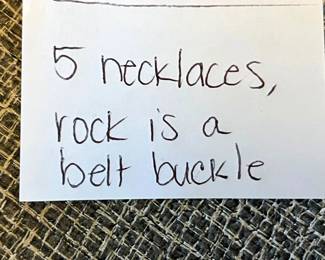 5 necklaces,
rock is a
belt buckle